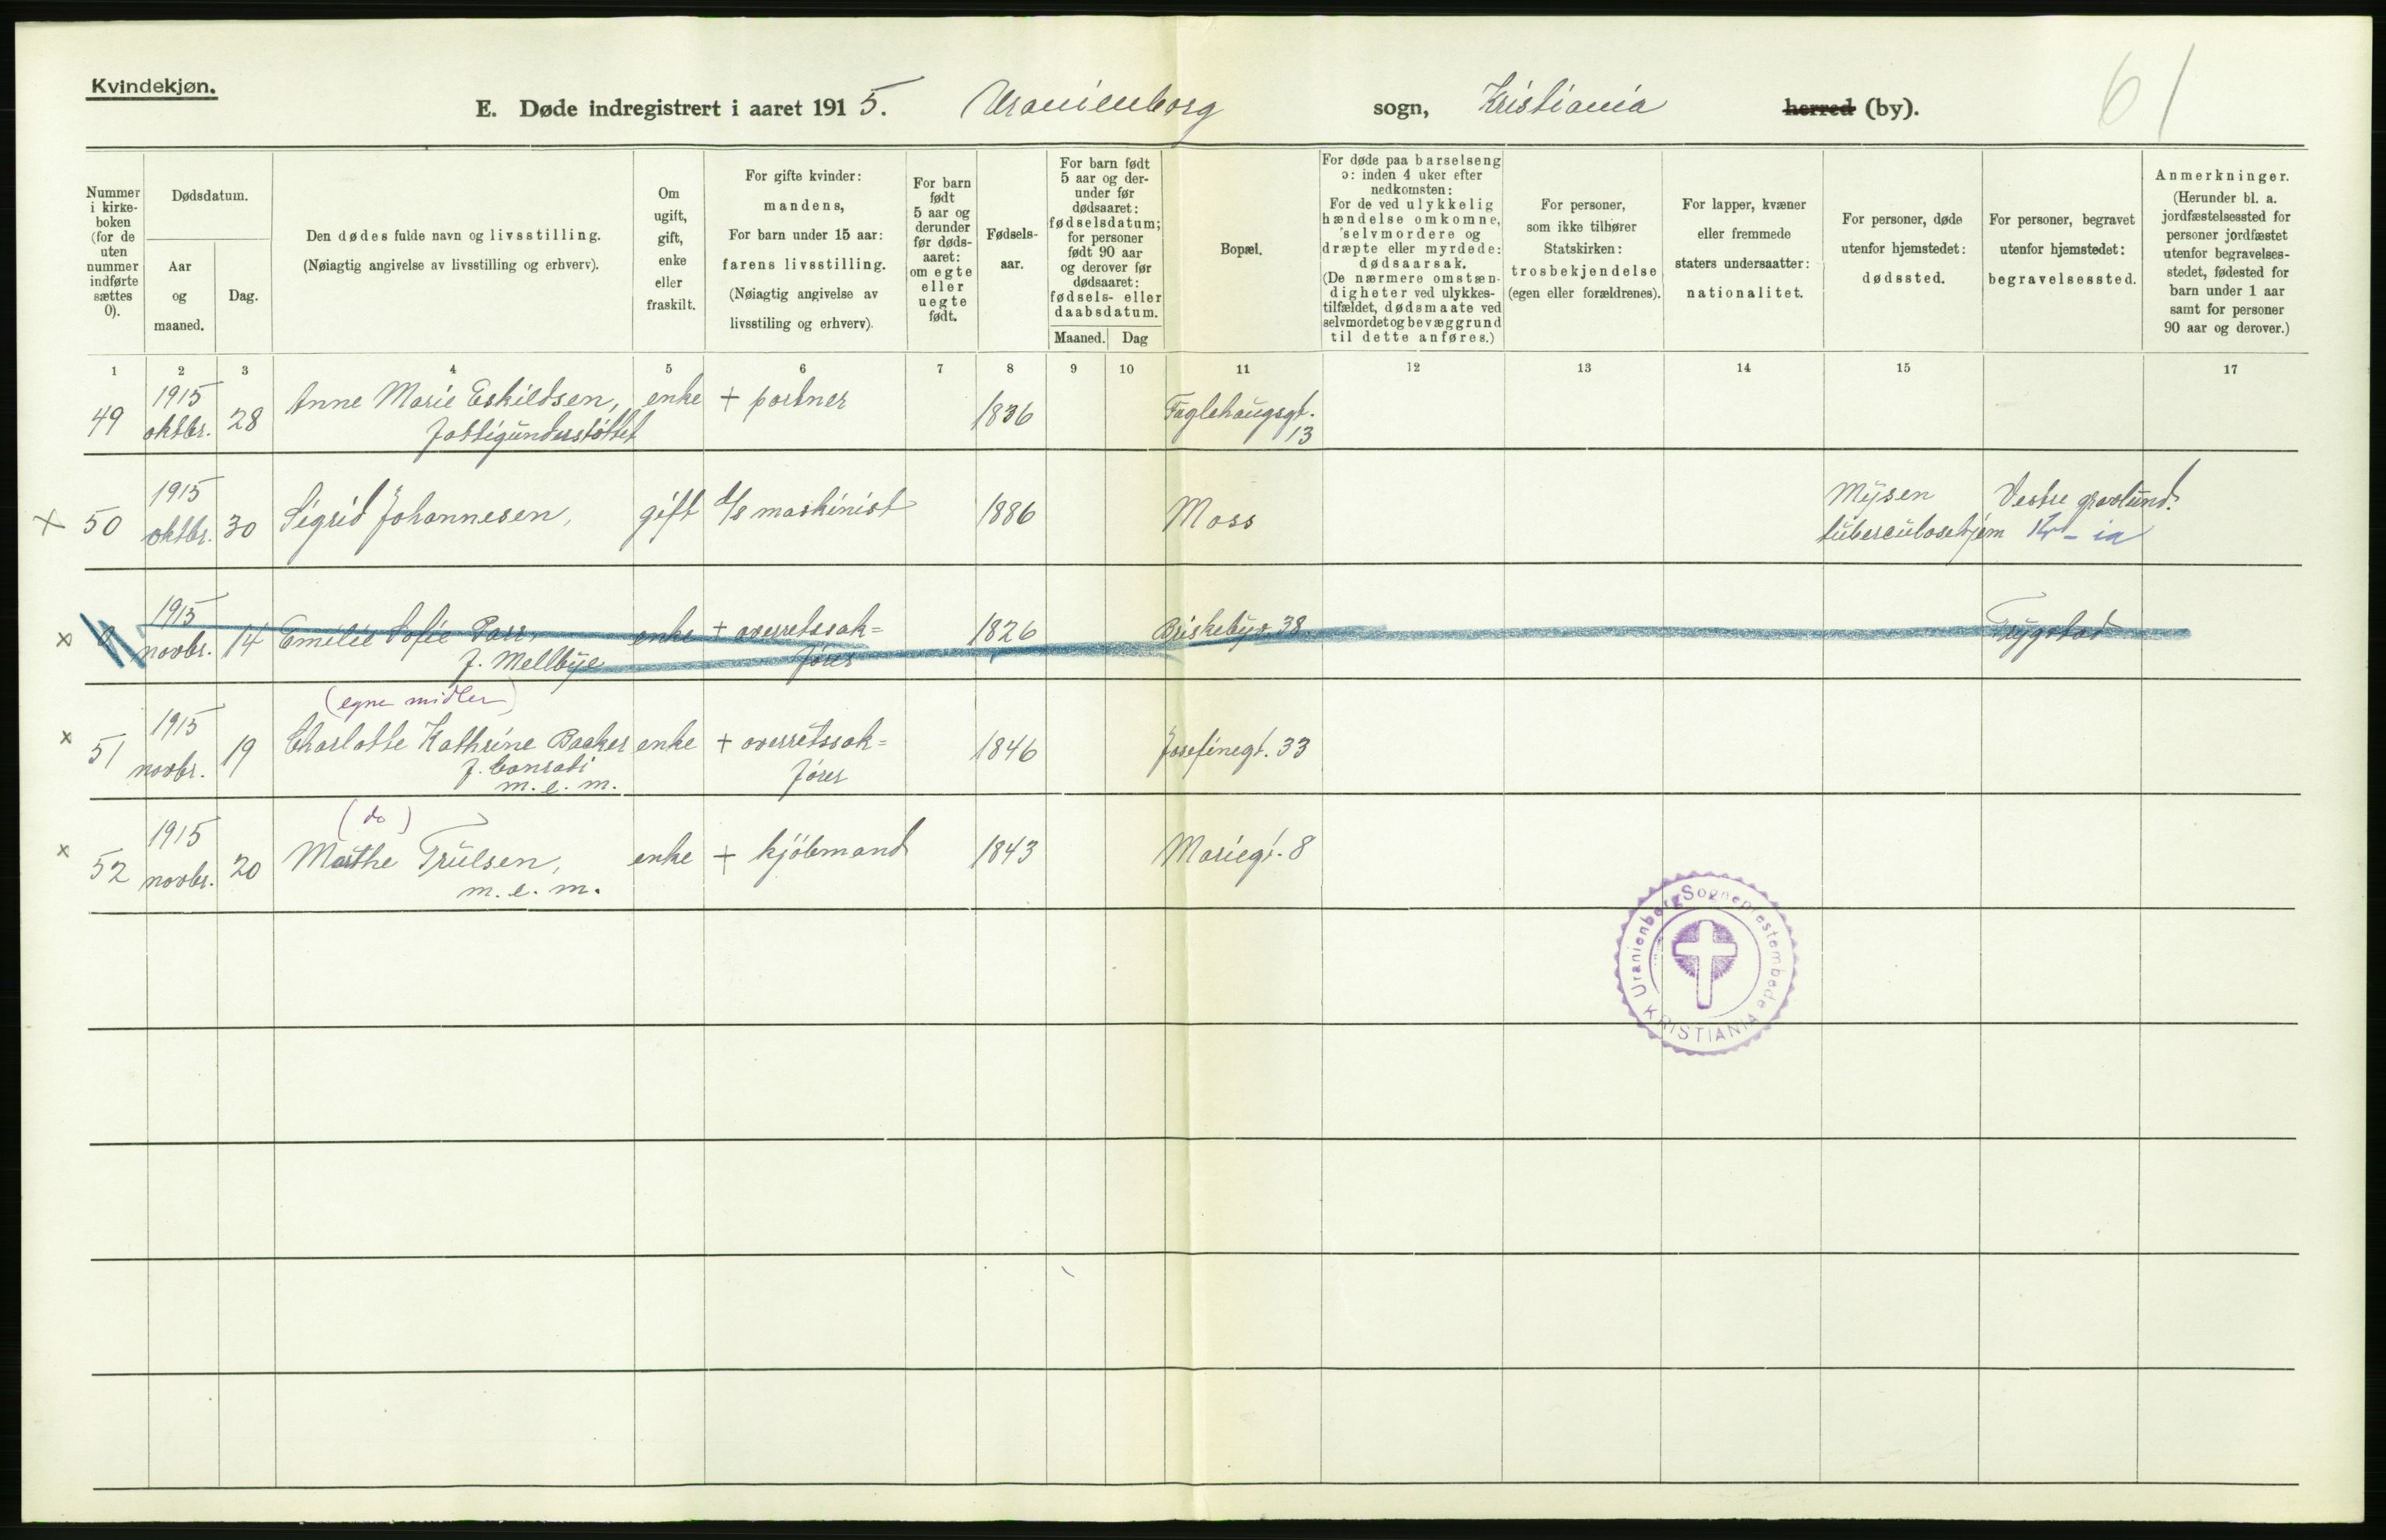 Kvindekjøn.
E. Døde indregistrert i aaret 1915. Uranienborg sogn, Kristiania herred (by).
61
Nummer
i kirke-
boken
(for de
uten
nummer
indførte
sættes
0).
Dødsdatum.
Aar
og
maaned.
Dag.
Den dødes fulde navn og livsstilling.
(Nøiagtig angivelse av livsstilling og erhverv).
Om
ugift,
gift,
enke
eller
fraskilt.
For gifte kvinder:
mandens,
For barn under 15 aar:
farens livsstilling.
(Nøiagtig angivelse av
livsstiling og erhverv).
For barn
født
5 aar og
derunder
før døds-
aaret:
om egte
eller
uegte
født.
Fødsels-
aar.
For barn født
5 aar og der-
under før
dødsaaret:
fødselsdatum;
for personer
født 90 aar
og derover før
dødsaaret:
fødsels- eller
daabsdatum.
Maaned. Dag
Bopæl.
For døde paa barselseng
ɔ: inden 4 uker efter
nedkomsten:
For de ved ulykkelig
hændelse omkomne,
selvmordere og
dræpte eller myrdede:
dødsaarsak.
(De nærmere omstæn-
digheter ved ulykkes-
tilfældet, dødsmaate ved
selvmordet og bevæggrund
til dette anføres.)
For personer,
som ikke tilhører
Statskirken:
trosbekjendelse
(egen eller forældrenes).
For lapper, kvæner
eller fremmede
staters undersaatter:
nationalitet.
For personer, døde
utenfor hjemstedet:
dødssted.
For personer, begravet
utenfor hjemstedet:
begravelsessted.
Anmerkninger.
(Herunder bl. a.
jordfæstelsessted for
personer jordfæstet
utenfor begravelses-
stedet, fødested for
barn under 1 aar
samt for personer
90 aar og derover.)
1 2 3 4 5 6 7 8 9 10 11 12 13 14 15 17
49 1915 oktbr. 28 Anne Marie Eskildsen, enke + portner 1836 Fuglehaugsgt. 13
fattigunderstøttet
x 50 1915 oktbr. 30 Sigrid Johannesen, gift d/s maskinist 1886 Moss Mysen Vestre gravlund.
tuberculosehjem Kr-ia
x 0 1915 novbr. 14 Emilie Sofie Parr, enke + overretssak= 1826 Briskebyv. 38 Trygstad
f. Mellbye fører
(egne midler)
x 51 1915 novbr. 19 Charlotte Kathrine Backer enke + overretssak= 1846 Josefinegt. 33
f. Conradi fører
m. e. m.
(do)
x 52 1915 novbr. 20 Marthe Trulsen, enke + kjøbmand 1843 Mariegt. 8
m. e. m.
Uranienborg Sogneprestembede
KRISTIANIA